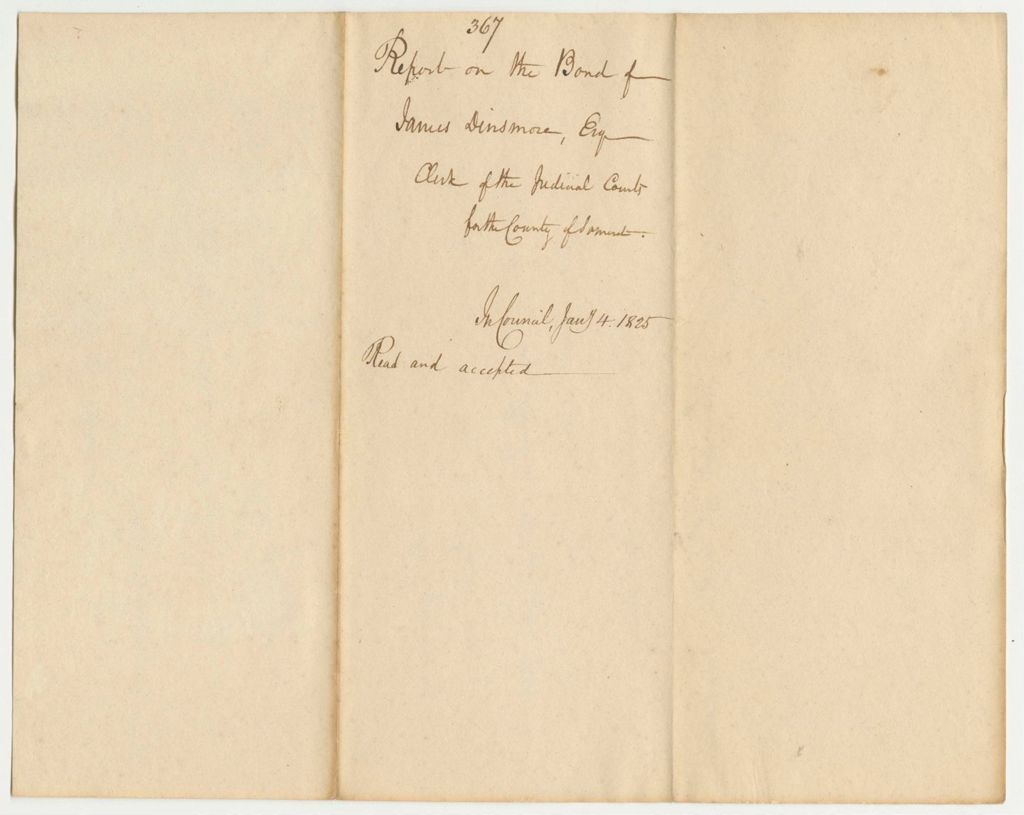 367
Report on the Bond of
James Dinsmore, Esq
Clerk of the Judicial Courts
for the County of Somerset.
In Council, Jany 4. 1825
Read and accepted